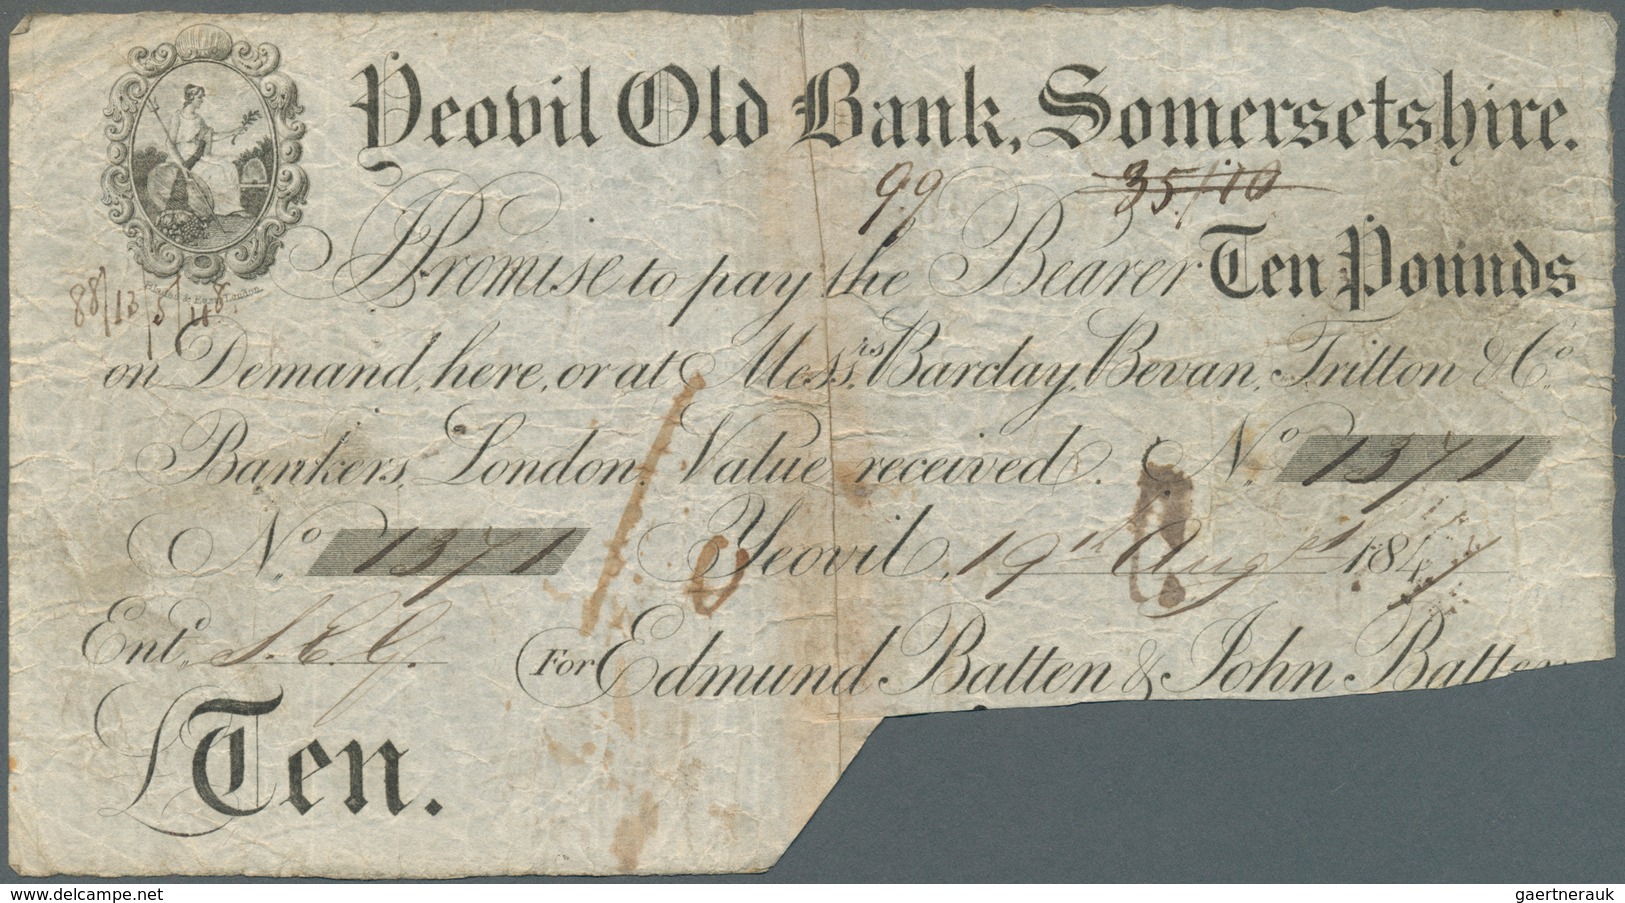 Yeovil Old Bank, Somersetshire.
99 35/10
I Promise to pay the Bearer Ten Pounds
88/13/5/118
on Demand, here, or at Messrs. Barclay, Bevan, Tritton & Co.
Bankers, London, Value received. No. 1371
No. 1371 Yeovil, 19th Augst 1847
Entd. S.E.G.
For Edmund Batten & John Batten
£Ten.
gaertnerauk